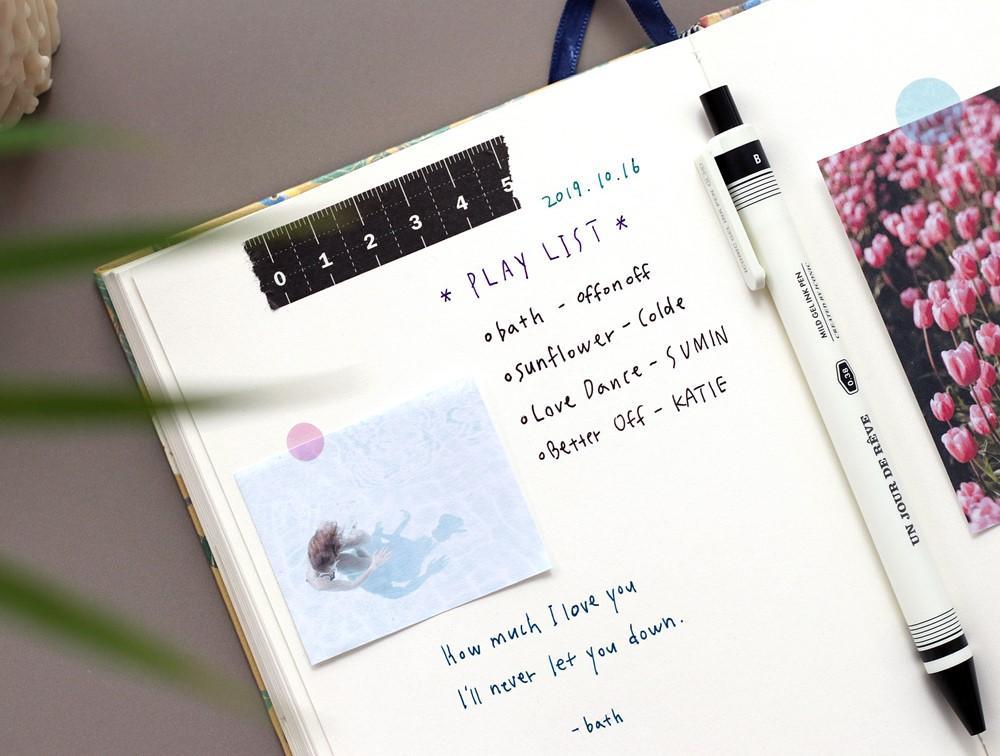 0 1 2 3 4 5
2019.10.16
* PLAY LIST *
bath - offonoff
sunflower - Colde
Love Dance - SUMIN
Better Off - KATIE
How much I love you
I'll never let you down.
- bath
B
MILD GEL INK PEN
CREATED BY ICONIC
0.38
UN JOUR DE RÊVE